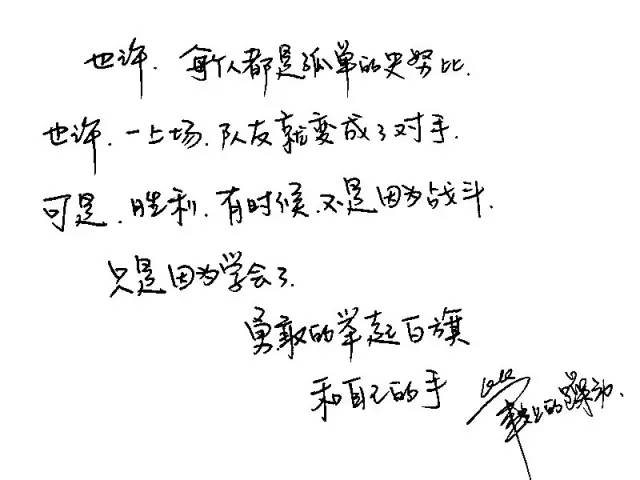 也许.每个人都是孤单的史努比.
也许.一上场.队友就变成了对手.
可是.胜利.有时候.不是因为战斗.
只是因为学会了.
勇敢的举起白旗
和自己的手